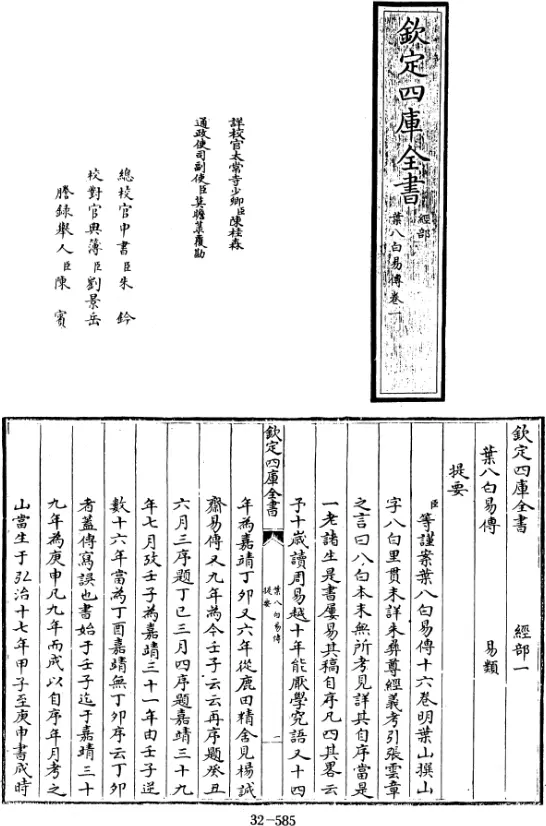 欽定四庫全書
經部
葉八白易傳卷一
詳校官太常寺少卿臣陳桂森
通政使司副使臣莫瞻菉覆勘
總校官中書臣朱鈐
校對官典簿臣劉景岳
謄錄舉人臣陳賓
欽定四庫全書 經部一
葉八白易傳 易類
提要
臣等謹案葉八白易傳十六卷明葉山撰山
字八白里貫未詳朱彞尊經義考引張雲章
之言曰八白本末無所考見詳其自序當是
一老諸生是書屢易其稿自序凡四其畧云
予十歲讀周易越十年能厭學究語又十四
欽定四庫全書
葉八白易傳
提要
年為嘉靖丁卯又六年從鹿田精舍見楊誠
齋易傳又九年為今壬子云云再序題癸丑
六月三序題丁巳三月四序題嘉靖三十九
年七月攷壬子為嘉靖三十一年由壬子逆
數十六年當為丁酉嘉靖無丁卯序云丁卯
者蓋傳寫誤也書始于壬子迄于嘉靖三十
九年為庚申凡九年而成以自序年月考之
山當生于弘治十七年甲子至庚申書成時
32-585